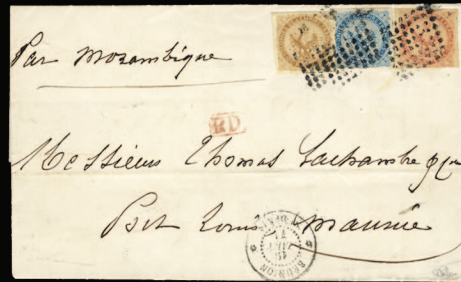 Par Mozambique
PD
Messieurs Thomas Lachambre & Co
Port Louis Maurice
RÉUNION